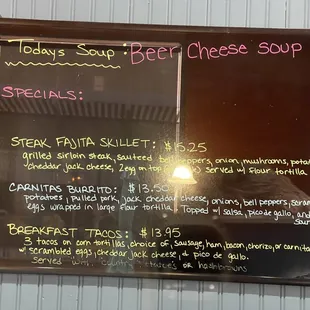 Todays Soup: Beer Cheese soup
SPECIALS:
STEAK FAJITA SKILLET: $15.25
grilled sirloin steak, sauteed bell peppers, onion, mushrooms,
cheddar jack cheese, 2 egg on top served w/ flour tortilla
CARNITAS BURRITO: $13.50
potatoes, pulled pork, jack cheddar cheese, onions, bell peppers,
eggs wrapped in large flour tortilla. Topped w/ salsa, pico de gallo, and
BREAKFAST TACOS: $13.95
3 tacos on corn tortillas, choice of, sausage, ham, bacon, chorizo, or
w/ scrambled eggs, cheddar jack cheese, & pico de gallo.
served with country potatoes or hashbrowns